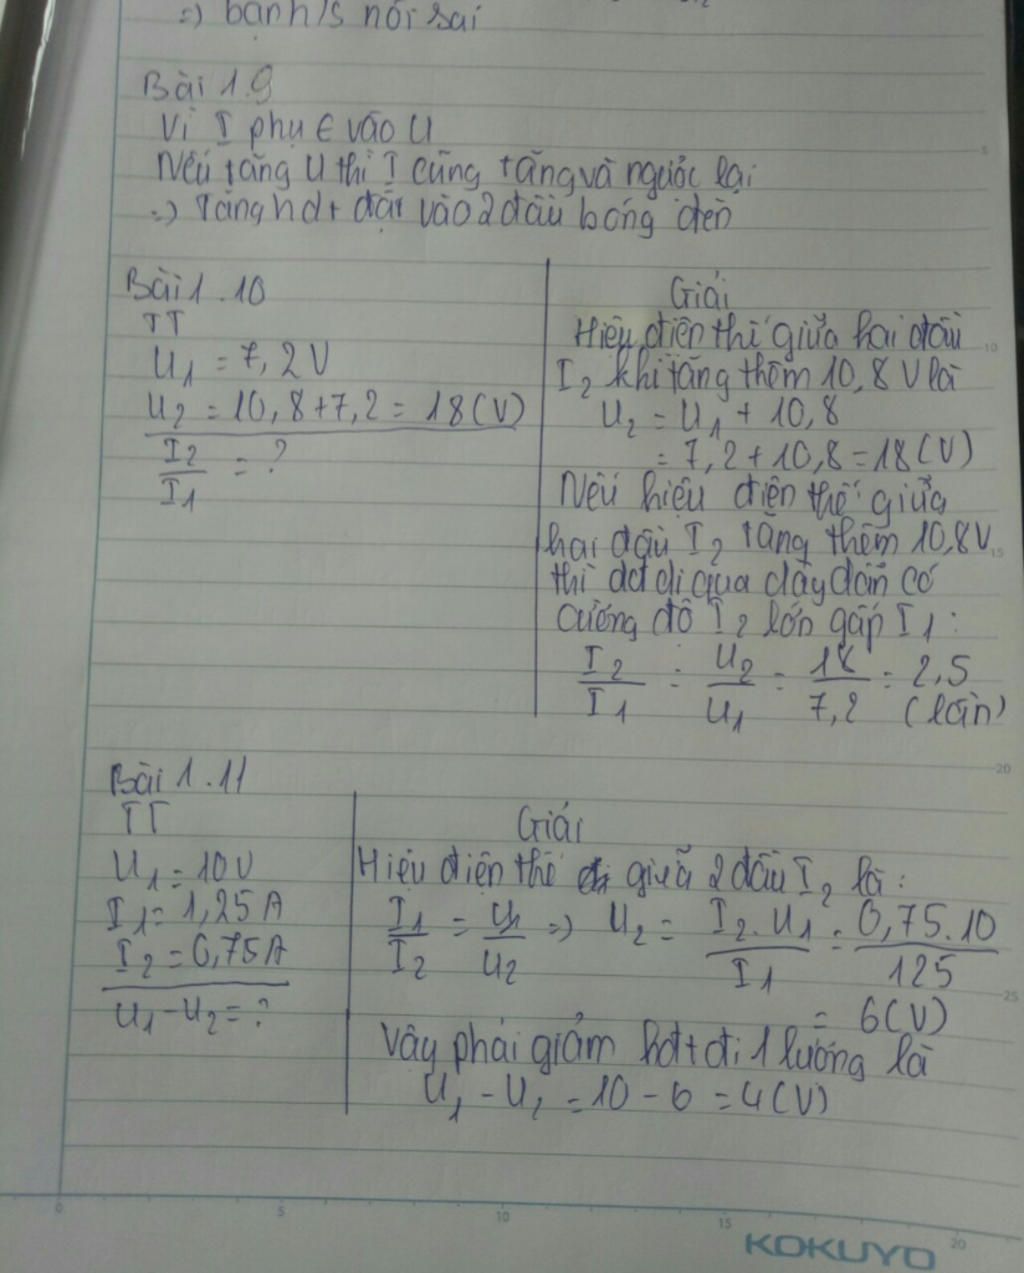 =) bạn h/s nói sai
Bài 1.9
Vì I phụ € vào U
Nếu tăng U thì I cũng tăng và ngược lại
=) Tăng hđt đặt vào 2 đầu bóng đèn
Bài 1.10
TT
U1 = 7,2V
U2 = 10,8+7,2 = 18(V)
I2/I1 = ?
Giải
Hiệu điện thế giữa hai đầu
I2 khi tăng thêm 10,8V là
U2 = U1 + 10,8
= 7,2+10,8=18(V)
Nếu hiệu điện thế giữa
hai đầu I2 tăng thêm 10,8V
thì dđ đi qua dây dẫn có
cường độ I2 lớn gấp I1:
I2/I1 = U2/U1 = 18/7,2 = 2,5
(lần)
Bài 1.11
TT
U1 = 10V
I1 = 1,25A
I2 = 0,75A
U1-U2=?
Giải
Hiệu điện thế giữa 2 đầu I2 là:
I1/I2 = U1/U2 =) U2 = I2.U1/I1 = 0,75.10/125
= 6(V)
Vậy phải giảm hđt đi 1 lượng là
U1 - U2 = 10 - 6 = 4(V)
0 5 10 15 20
KOKUYO